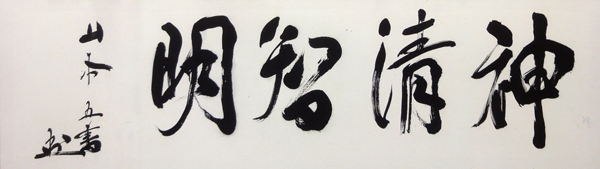 神清智明
山本五書